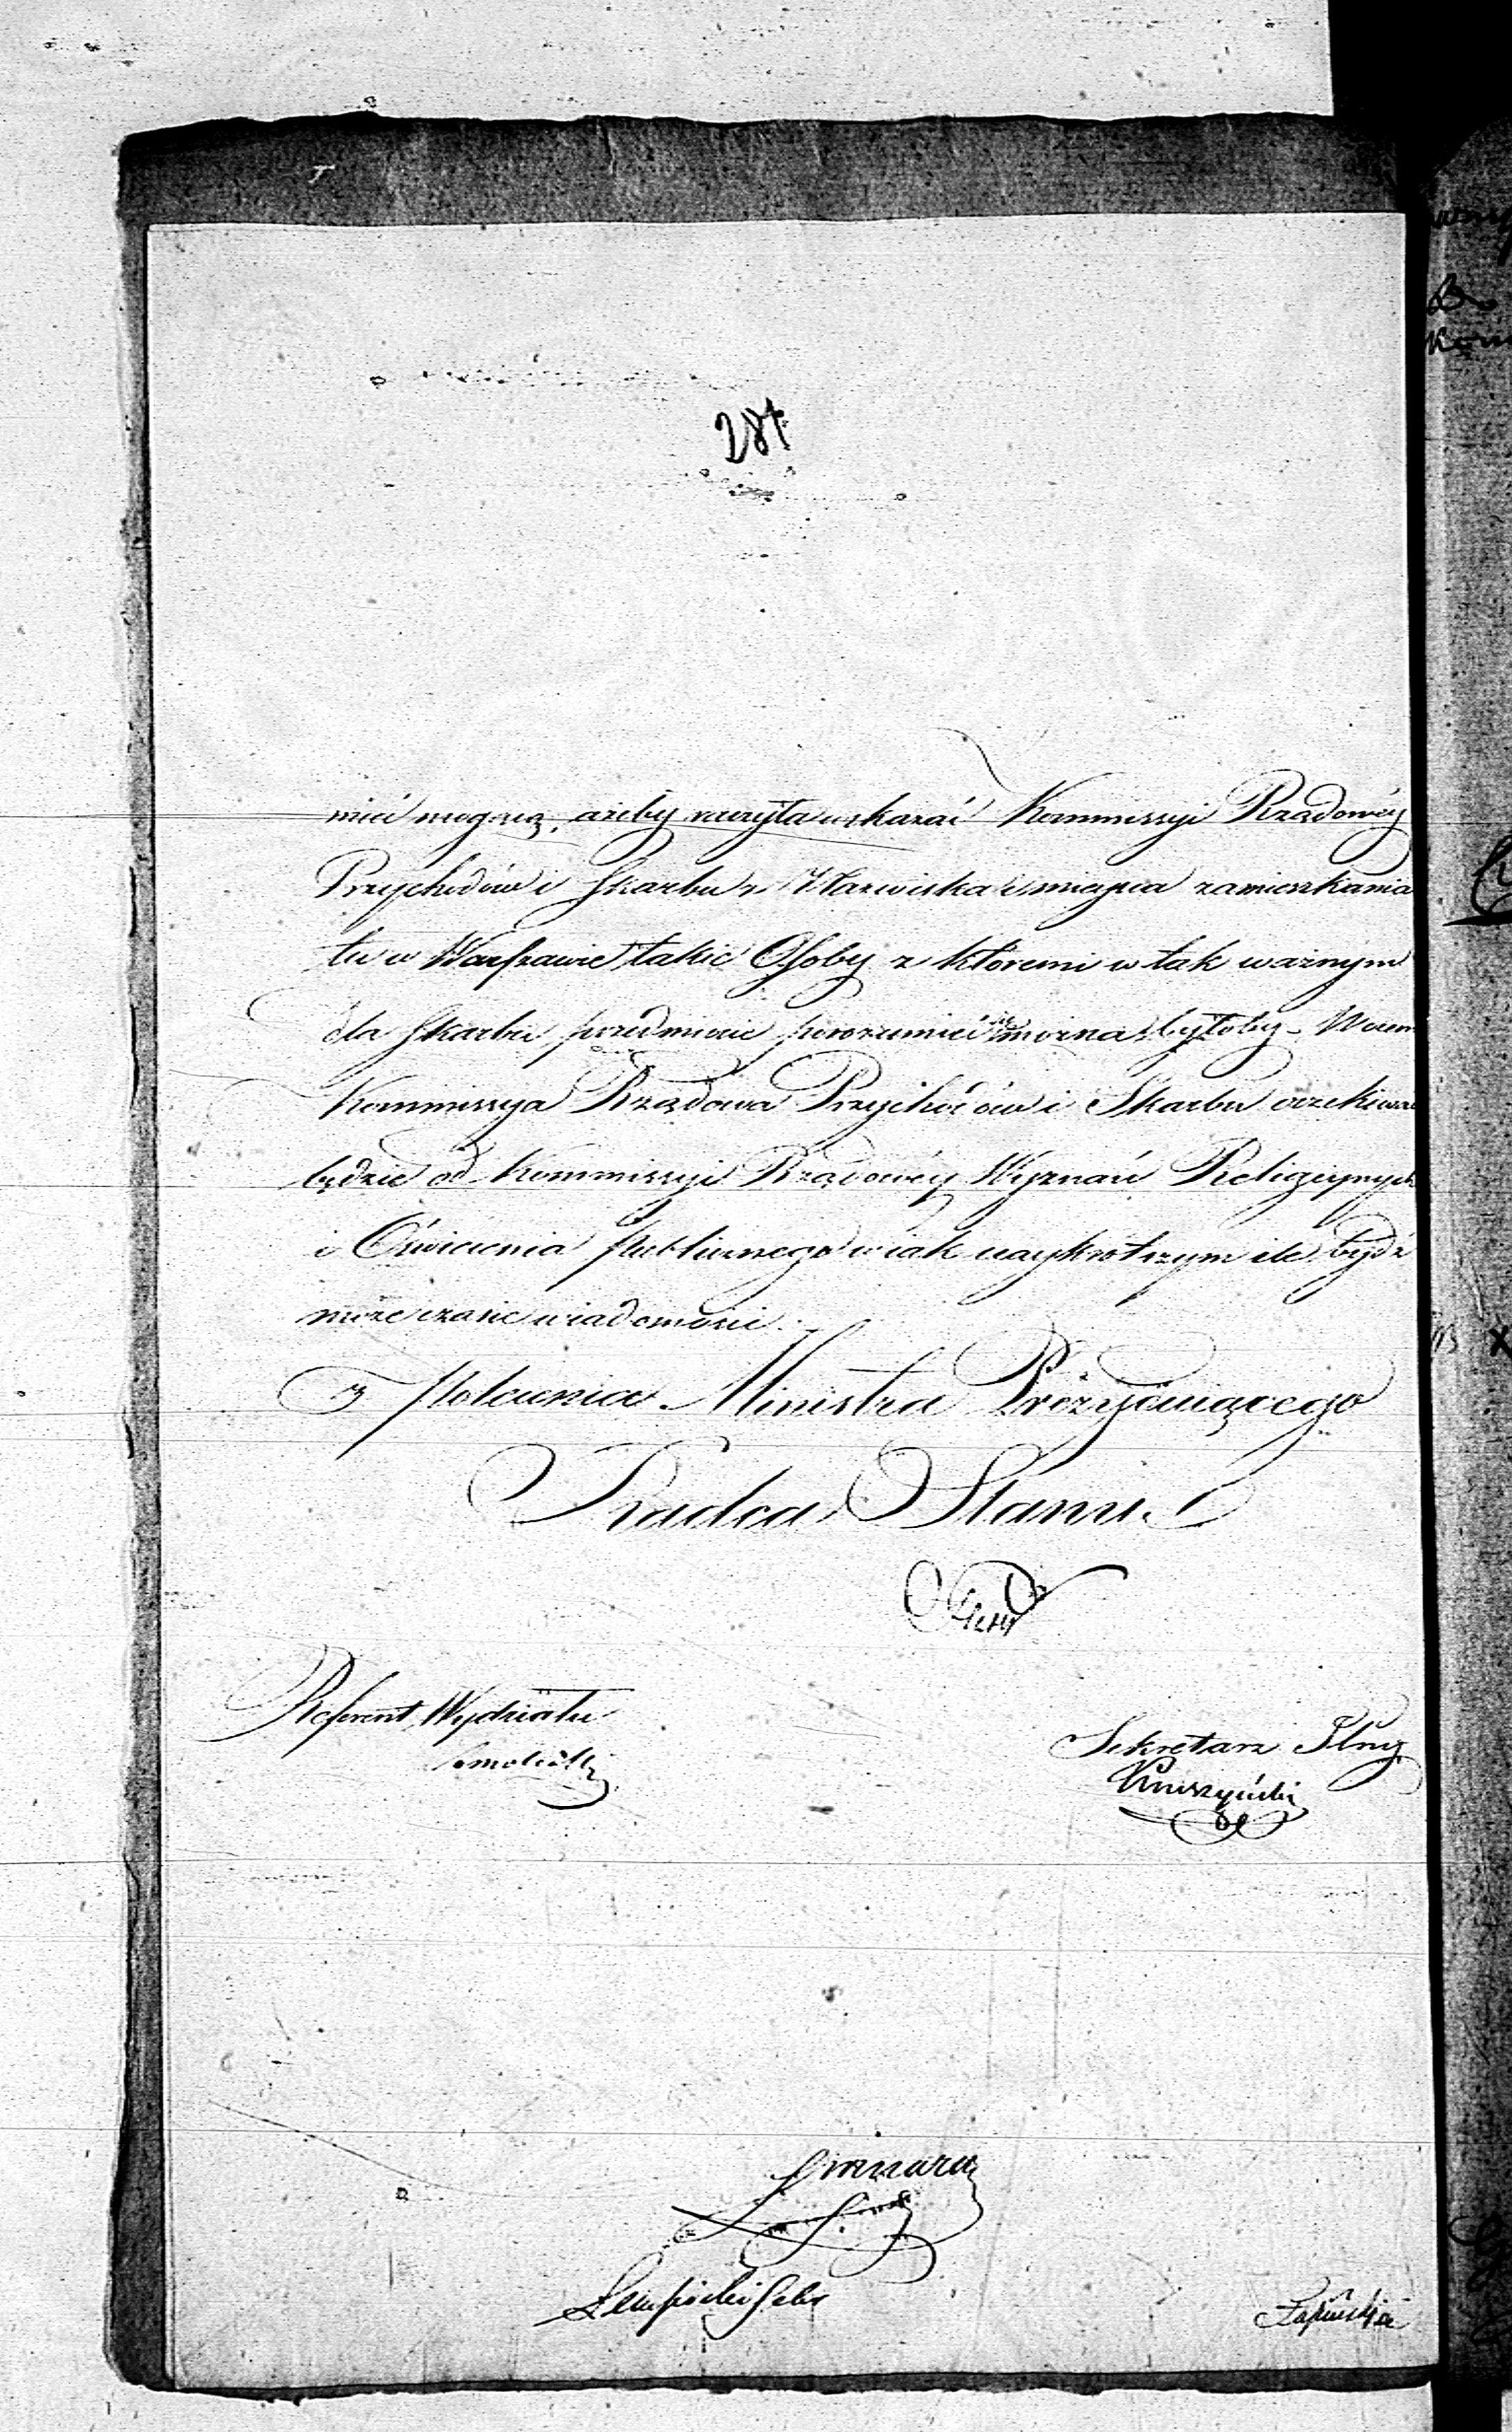 284
mieć mogącą, ażeby raczyła wskazać Kommissyi Rządowéy
Przychodów i Skarbu z Nazwiska i mieysca zamieszkania
tu w Warszawie takie Osoby z któremi w tak ważnym
dla Skarbu przedmiocie porozumieć się można byłoby –
Kommissya Rządowa Przychodów i Skarbu oczekiwać
będzie od Kommissyi Rządowéy Wyznań Religiynych
i Oświecenia Publicznego w iak naykrótszym ile bydź
może czasie wiadomości.
z Polecenia Ministra Prezyduiącego
Radca Stanu
Referent Wydziału
Sekretarz Jlny